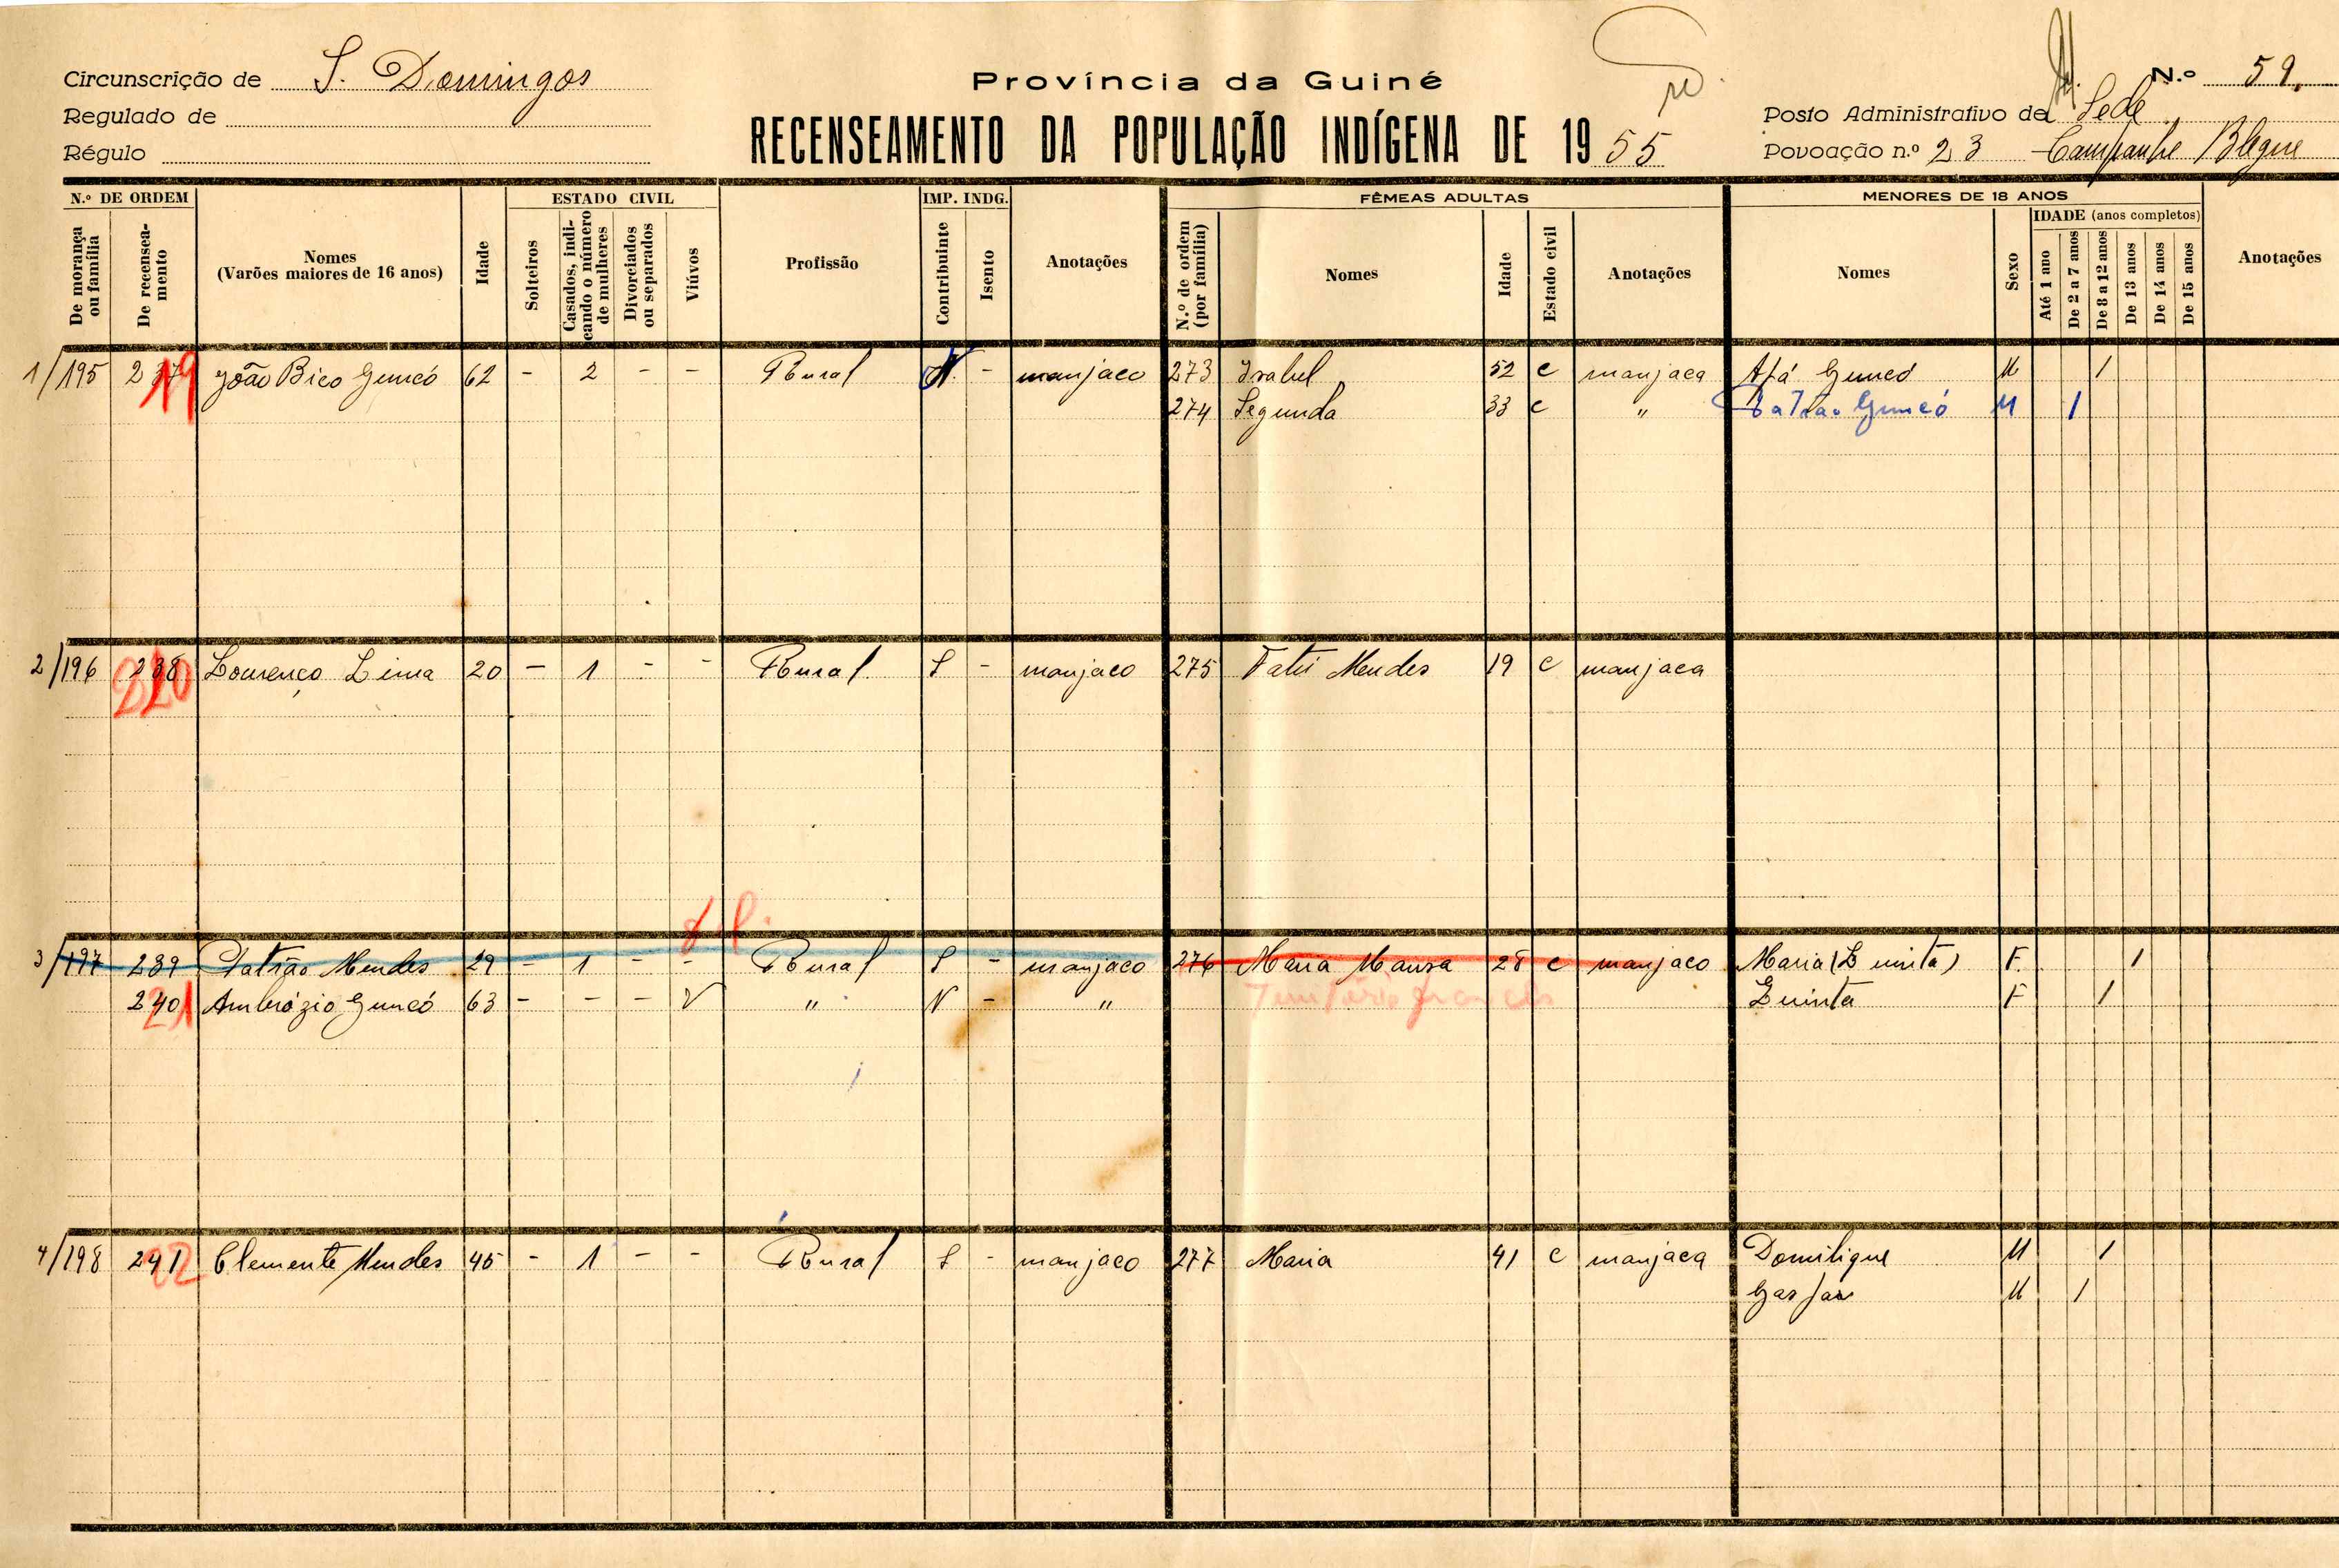 Circunscrição de S. Domingos
Província da Guiné
N.º 59.
Regulado de
Posto Administrativo de Sede
Régulo
RECENSEAMENTO DA POPULAÇÃO INDÍGENA DE 1955
Povoação n.º 23 Campanhe Blegue
N.º DE ORDEM
De morança ou família
De recenseamento
Nomes
(Varões maiores de 16 anos)
Idade
ESTADO CIVIL
Solteiros
Casados, indicando o número de mulheres
Divorciados ou separados
Viúvos
Profissão
IMP. INDG.
Contribuinte
Isento
Anotações
FÊMEAS ADULTAS
N.º de ordem (por família)
Nomes
Idade
Estado civil
Anotações
MENORES DE 18 ANOS
Nomes
Sexo
IDADE (anos completos)
Até 1 ano
De 2 a 7 anos
De 8 a 12 anos
De 13 anos
De 14 anos
De 15 anos
Anotações
1/195 237 19 João Bico Gomcó 62 - 2 - - Rural N - manjaco 273 Isabel 52 c manjaca Afá Gomcó M 1
274 Segunda 33 c " Patrão Gomcó M 1
2/196 238 20 Lourenço Lima 20 - 1 - - Rural S - manjaco 275 Fatú Mendes 19 c manjaca
3/197 239 Patrão Mendes 29 - 1 - - Rural S - manjaco 276 Maria Mansa 28 c manjaco Maria (Quinta) F. 1
240 21 Ambrózio Gomcó 63 - - - V " N - " Território francês Quinta F 1
4/198 241 22 Clemente Mendes 45 - 1 - - Rural S - manjaco 277 Maria 41 c manjaca Domilique M 1
Gaspar M 1